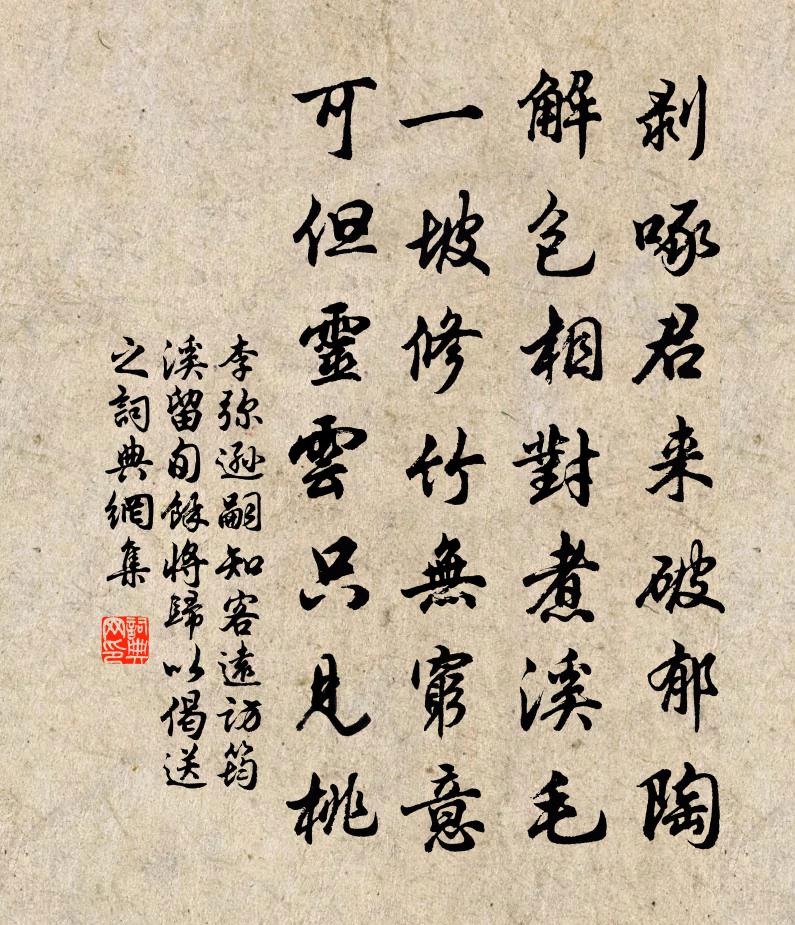 剥啄君来破郁陶
解包相對煮溪毛
一坡修竹無窮意
可但靈雲只見桃
李弥遜嗣知客遠訪筠
溪留旬餘將歸以偈送
之詞典網集
詞典網印